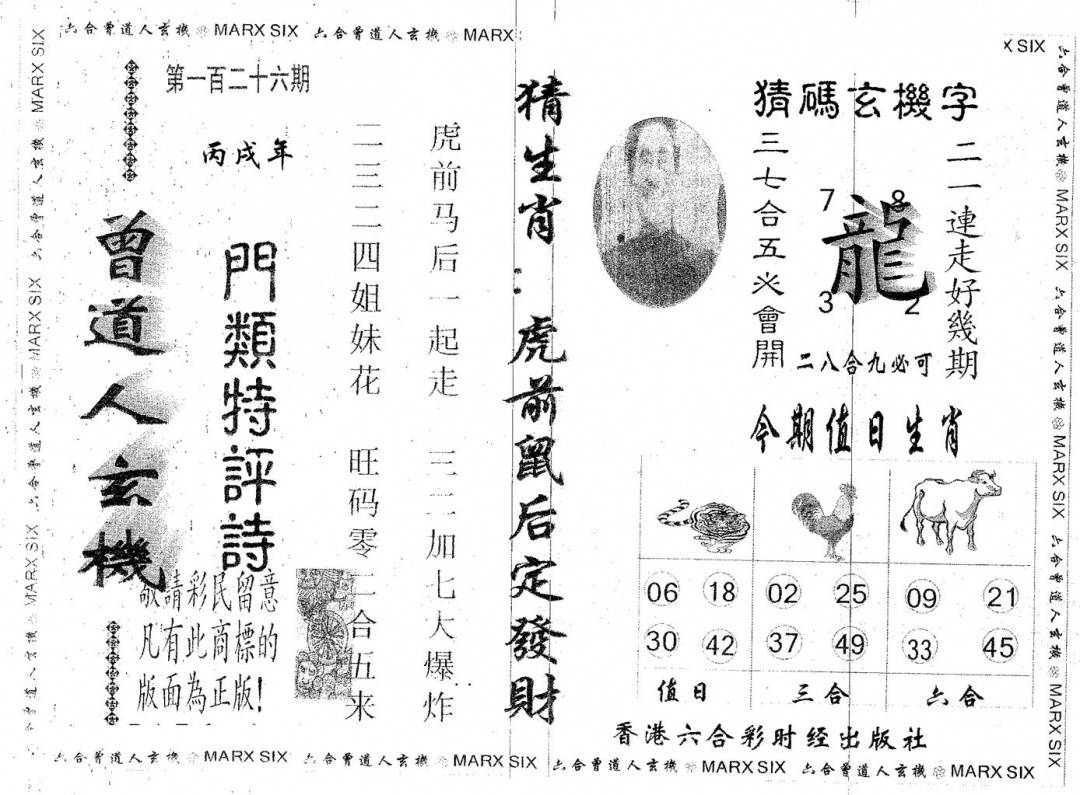 六合曾道人玄機 MARX SIX 六合曾道人玄機 MARX
X SIX
六合曾道人玄機 MARX SIX 六合曾道人玄機 MARX SIX 六合曾道人玄機 MARX SIX
第一百二十六期
丙戌年
曾道人玄機
門類特評詩
敬請彩民留意
凡有此商標的
版面為正版!
虎前马后一起走 三二加七大爆炸
二三二四姐妹花 旺码零二合五来
猜生肖:虎前鼠后定發財
猜碼玄機字
二一連走好幾期
三七合五必會開
7 8
龍
3 2
二八合九必可
今期值日生肖
06 18 02 25 09 21
30 42 37 49 33 45
值日 三合 六合
香港六合彩时经出版社
六合曾道人玄機 MARX SIX 六合曾道人玄機 MARX SIX 六合曾道人玄機 MARX SIX
六合曾道人玄機 MARX SIX 六合曾道人玄機 MARX SIX 六合曾道人玄機 MARX SIX 六合曾道人玄機 MARX SIX